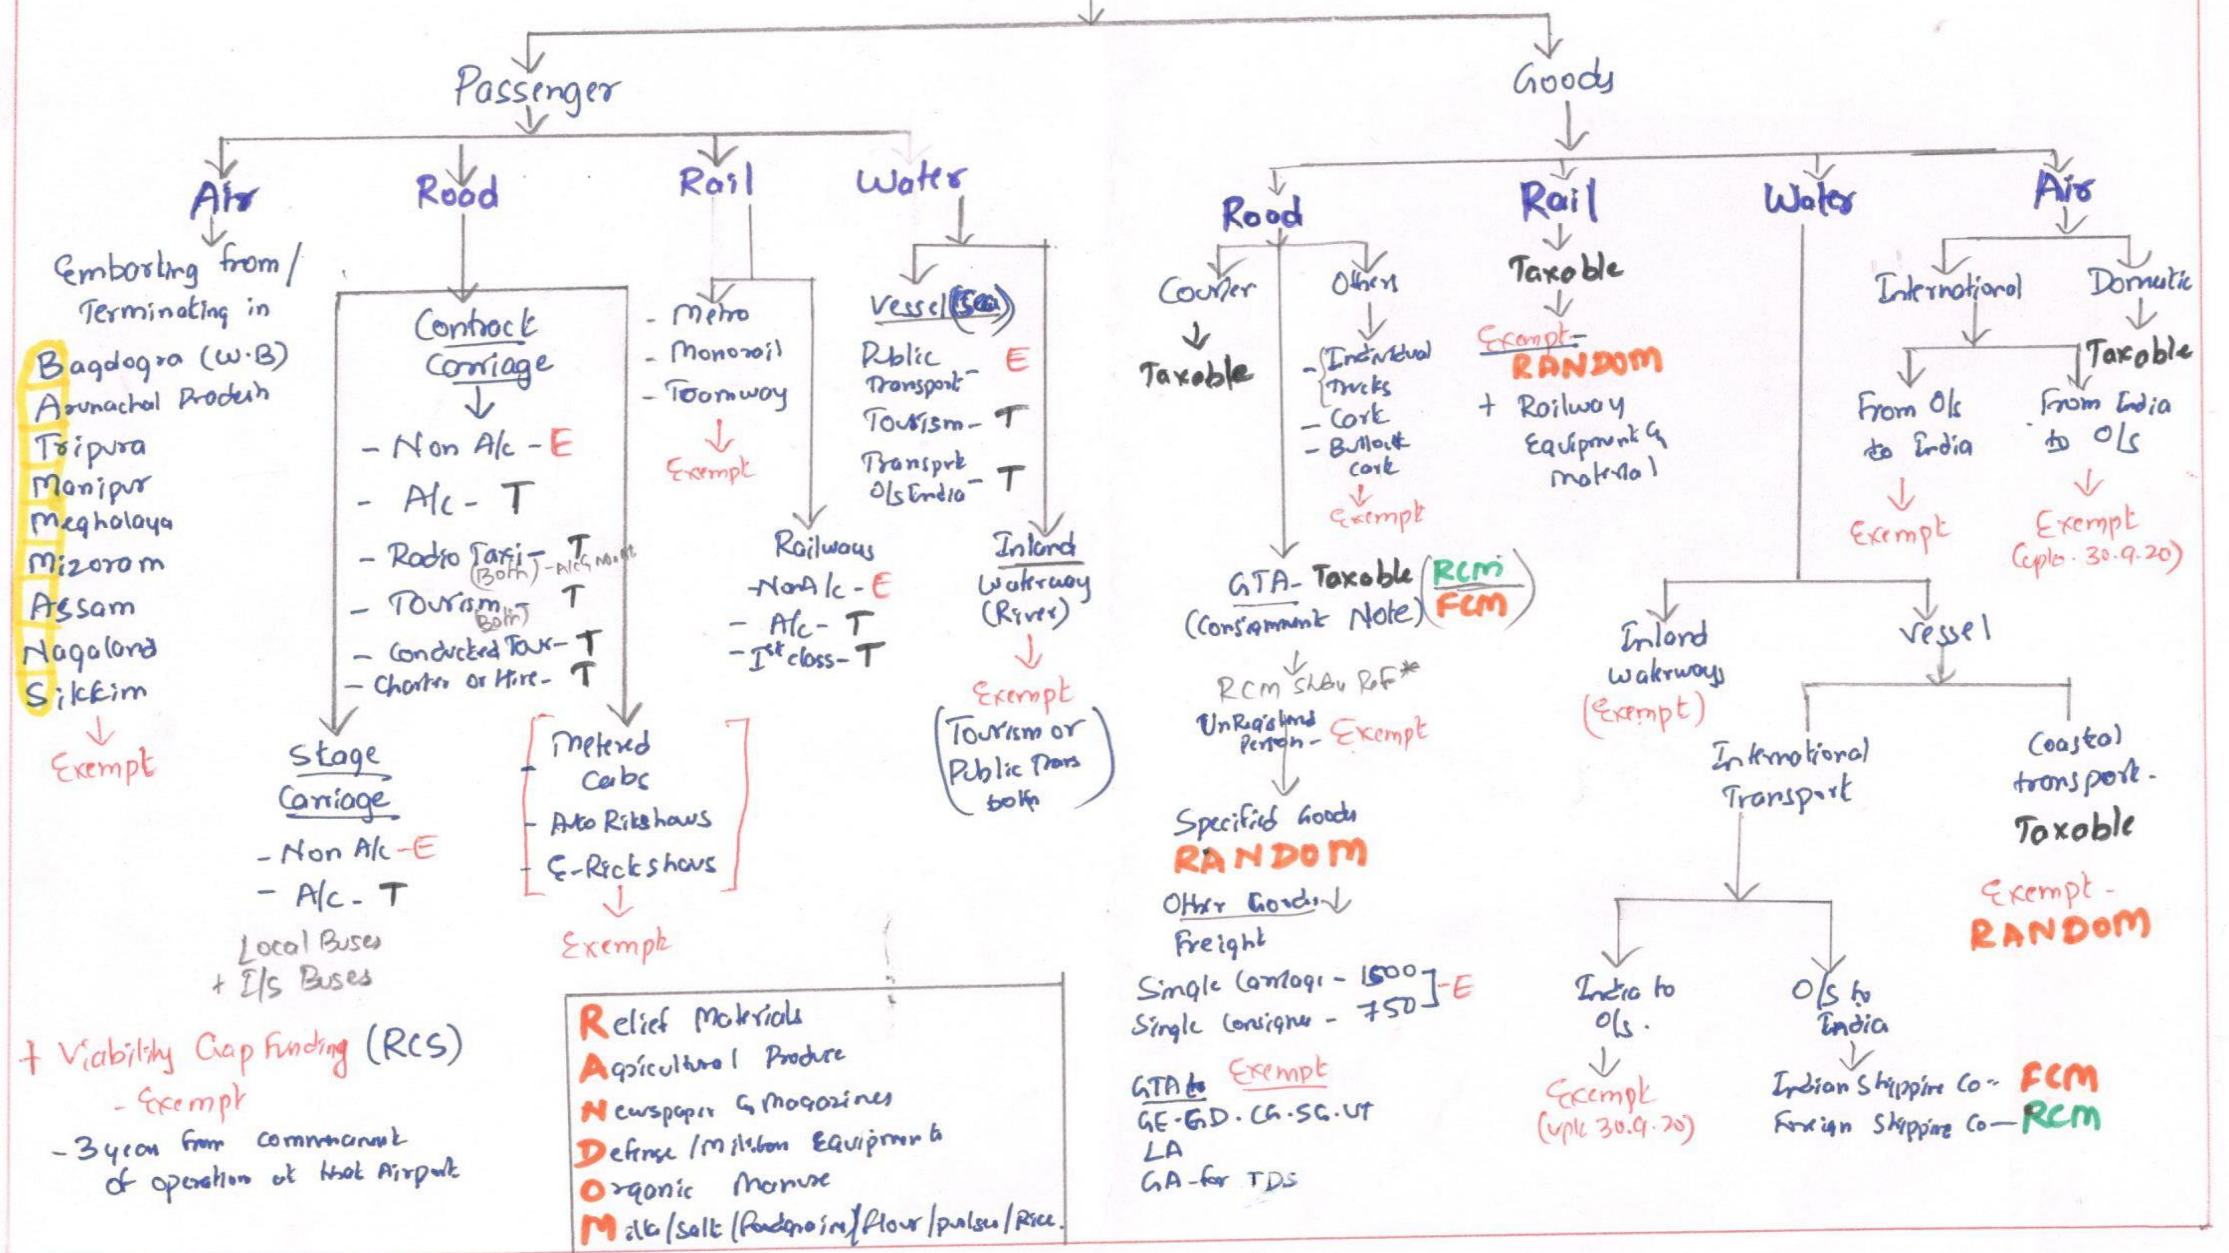 Passenger
Goods
Air
Road
Rail
Water
Road
Rail
Water
Air
Embarking from/
Terminating in
Bagdogra (W.B)
Arunachal Pradesh
Tripura
Manipur
Meghalaya
Mizoram
Assam
Nagaland
Sikkim
Exempt
Contract
Carriage
- Non A/c - E
- A/c - T
- Radio Taxi - T
(Both)
- Tourism - T
(Both)
- Conducted Tour - T
- Charter or Hire - T
Stage
Carriage
- Non A/c - E
- A/c - T
Local Buses
+ I/s Buses
- Metered
Cabs
- Auto Rikshaws
- E-Rickshaws
Exempt
- Metro
- Monorail
- Tramway
Exempt
Railways
- Non A/c - E
- A/c - T
- Ist class - T
Vessel (Sea)
Public
Transport - E
Tourism - T
Transport
O/s India - T
Inland
Waterway
(River)
Exempt
(Tourism or
Public Trans
both)
+ Viability Gap Funding (RCS)
- Exempt
- 3 year from commencement
of operation at that Airport
Relief Materials
Agricultural Produce
Newspaper & Magazines
Defense/Military Equipments
Organic Manure
Milk/Salt/Foodgrains/flour/pulses/Rice.
Courier
Taxable
Others
- Individual
Trucks
- Cart
- Bullock
cart
Exempt
GTA - Taxable (RCM
FCM)
(Consignment Note)
RCM
UnRegistered
Person - Exempt
Specified Goods
RANDOM
Other Goods
Freight
Single Carriage - 1500
Single Consignee - 750 ] - E
GTA to Exempt
GE.GD.CG.SG.UT
LA
GA - for TDS
Taxable
Exempt -
RANDOM
+ Railway
Equipment &
Material
Inland
Waterways
(Exempt)
Vessel
International
Transport
Coastal
transport -
Taxable
Exempt -
RANDOM
India to
O/s.
Exempt
(upto 30.9.20)
O/s to
India
Indian Shipping Co - FCM
Foreign Shipping Co - RCM
International
Domestic
Taxable
From O/s
to India
Exempt
From India
to O/s
Exempt
(upto. 30.9.20)